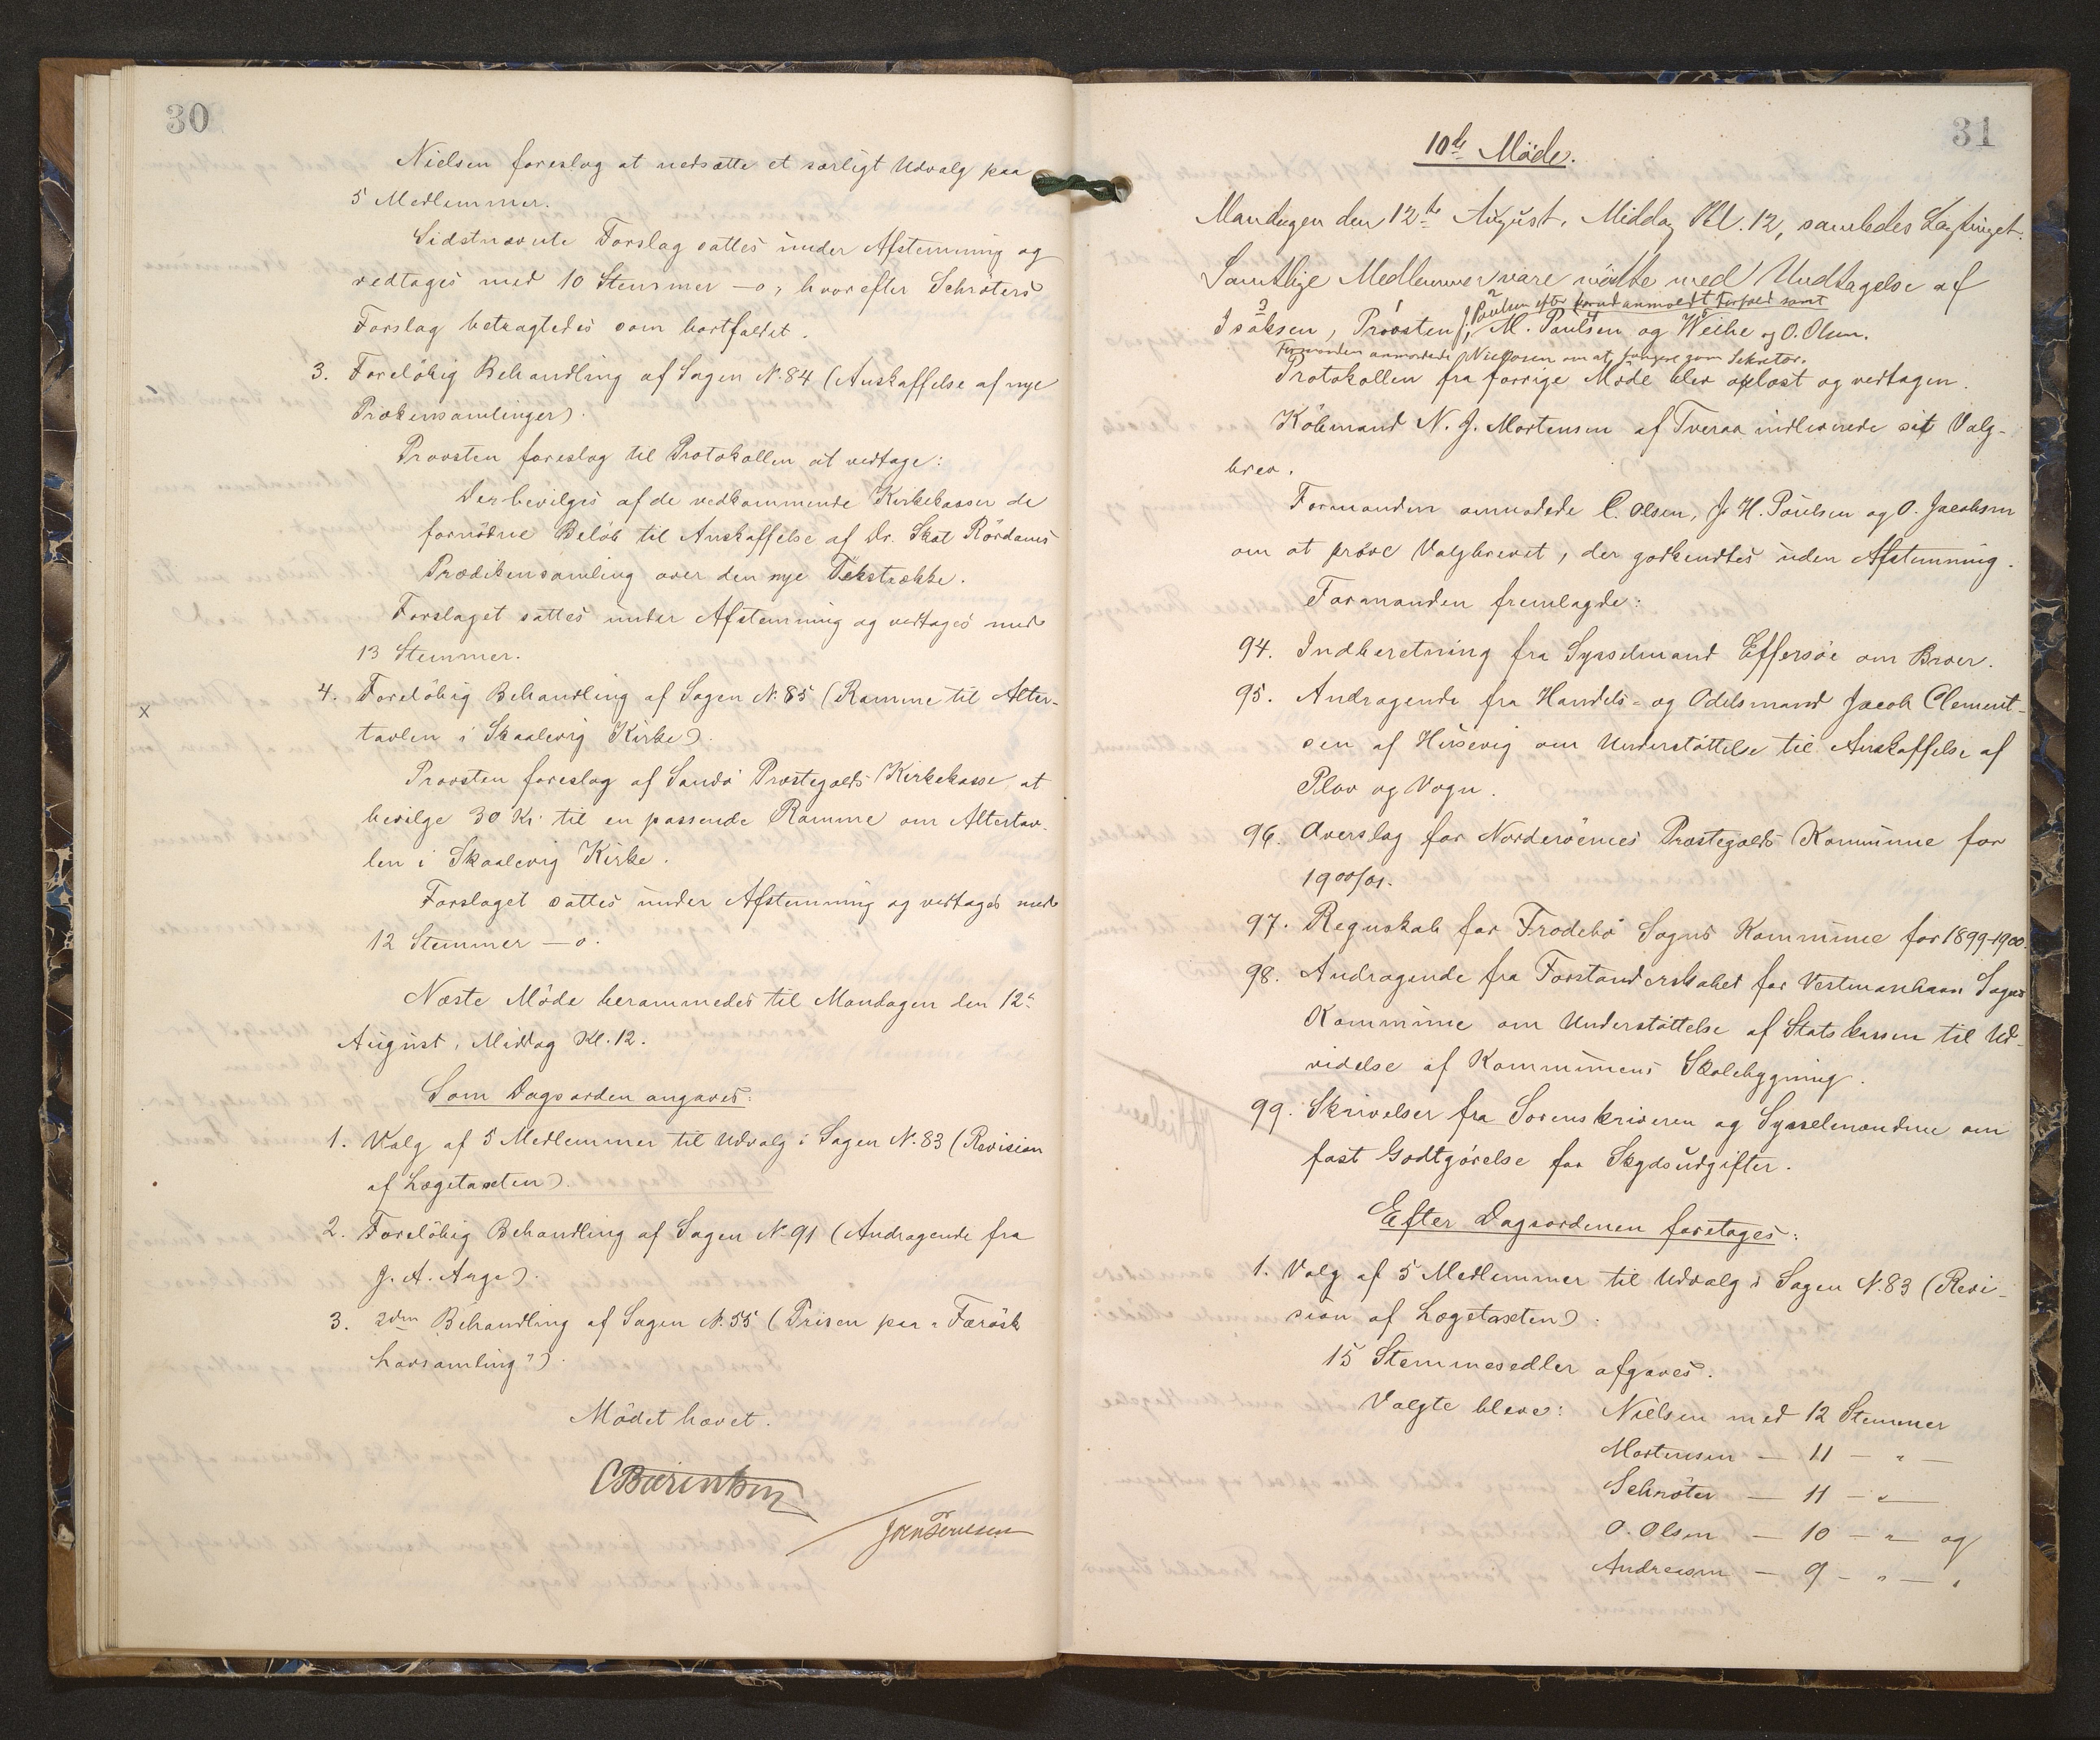 30
Nielsen foreslog at nedsætte et særligt Udvalg paa
5 Medlemmer.
Sidstnævnte Forslag sattes under Afstemning og
vedtoges med 10 Stemmer – 0, hvorefter Schröters
Forslag betragtedes som bortfaldet.
3. Foreløbig Behandling af Sagen N. 84 (Anskaffelse af nye
Prækensamlinger).
Provsten foreslog til Protokollen at vedtage:
Der bevilges af de vedkommende Kirkekasser de
fornødne Beløb til Anskaffelse af Dr. Skat Rördams
Prædikensamling over den nye Tekstrække.
Forslaget sattes under Afstemning og vedtoges med
13 Stemmer.
4. Foreløbig Behandling af Sagen N. 85 (Ramme til Alter-
x
tavlen i Skaalevig Kirke).
Provsten foreslog af Sandø Præstegjelds Kirkekasse at
bevilge 30 Kr. til en passende Ramme om Altertav-
len i Skaalevig Kirke.
Forslaget sattes under Afstemning og vedtoges med
12 Stemmer – 0.
Næste Møde berammedes til Mandagen den 12t
August, Middag Kl. 12.
Som Dagsorden angaves:
1. Valg af 5 Medlemmer til Udvalg i Sagen N. 83 (Revision
af Lægetaxten).
2. Foreløbig Behandling af Sagen N. 91 (Andragende fra
J. A. Arge).
3. 2den Behandling af Sagen N. 55 (Prisen paa "Færøsk
Lovsamling").
Mødet hævet.
C Bærentsen
31
10de Møde.
Mandagen den 12te August, Middag Kl. 12, samledes Lagtinget.
Samtlige Medlemmer vare mødte med Undtagelse af
J. Poulsen efter forud anmeldt Forfald samt
3 1 2 4 5
Isaksen, Provsten, M. Poulsen og Weihe og O. Olsen.
Formanden anmodede Nielsen om at fungere som Sekretær.
Protokollen fra forrige Møde blev oplæst og vedtagen.
Købmand N. J. Mortensen af Tveraa indleverede sit Valg-
brev.
Formanden anmodede C. Olsen, J. H. Poulsen og O. Jacobsen
om at prøve Valgbrevet, der godkendtes uden Afstemning.
Formanden fremlagde:
94. Indberetning fra Sysselmand Effersøe om Broer.
95. Andragende fra Handels- og Odelsmand Jacob Clement-
sen af Husevig om Understøttelse til Anskaffelse af
Plov og Vogn.
96. Overslag for Norderøernes Præstegjelds Kommune for
1900/01.
97. Regnskab for Frodebø Sogns Kommune for 1899-1900.
98. Andragende fra Forstanderskabet for Vestmanhavn Sogns
Kommune om Understøttelse af Statskassen til Ud-
videlse af Kommunens Skolebygning.
99. Skrivelser fra Sorenskriveren og Sysselmændene om
fast Godtgørelse for Skydsudgifter.
Efter Dagsordenen foretoges:
1. Valg af 5 Medlemmer til Udvalg i Sagen N. 83 (Revi-
sion af Lægetaxten).
15 Stemmesedler afgaves.
Valgte bleve: Nielsen med 12 Stemmer
Mortensen – 11 – " –
Schröter – 11 – " –
O. Olsen – 10 – " – og
Andreasen – 9 – " – .